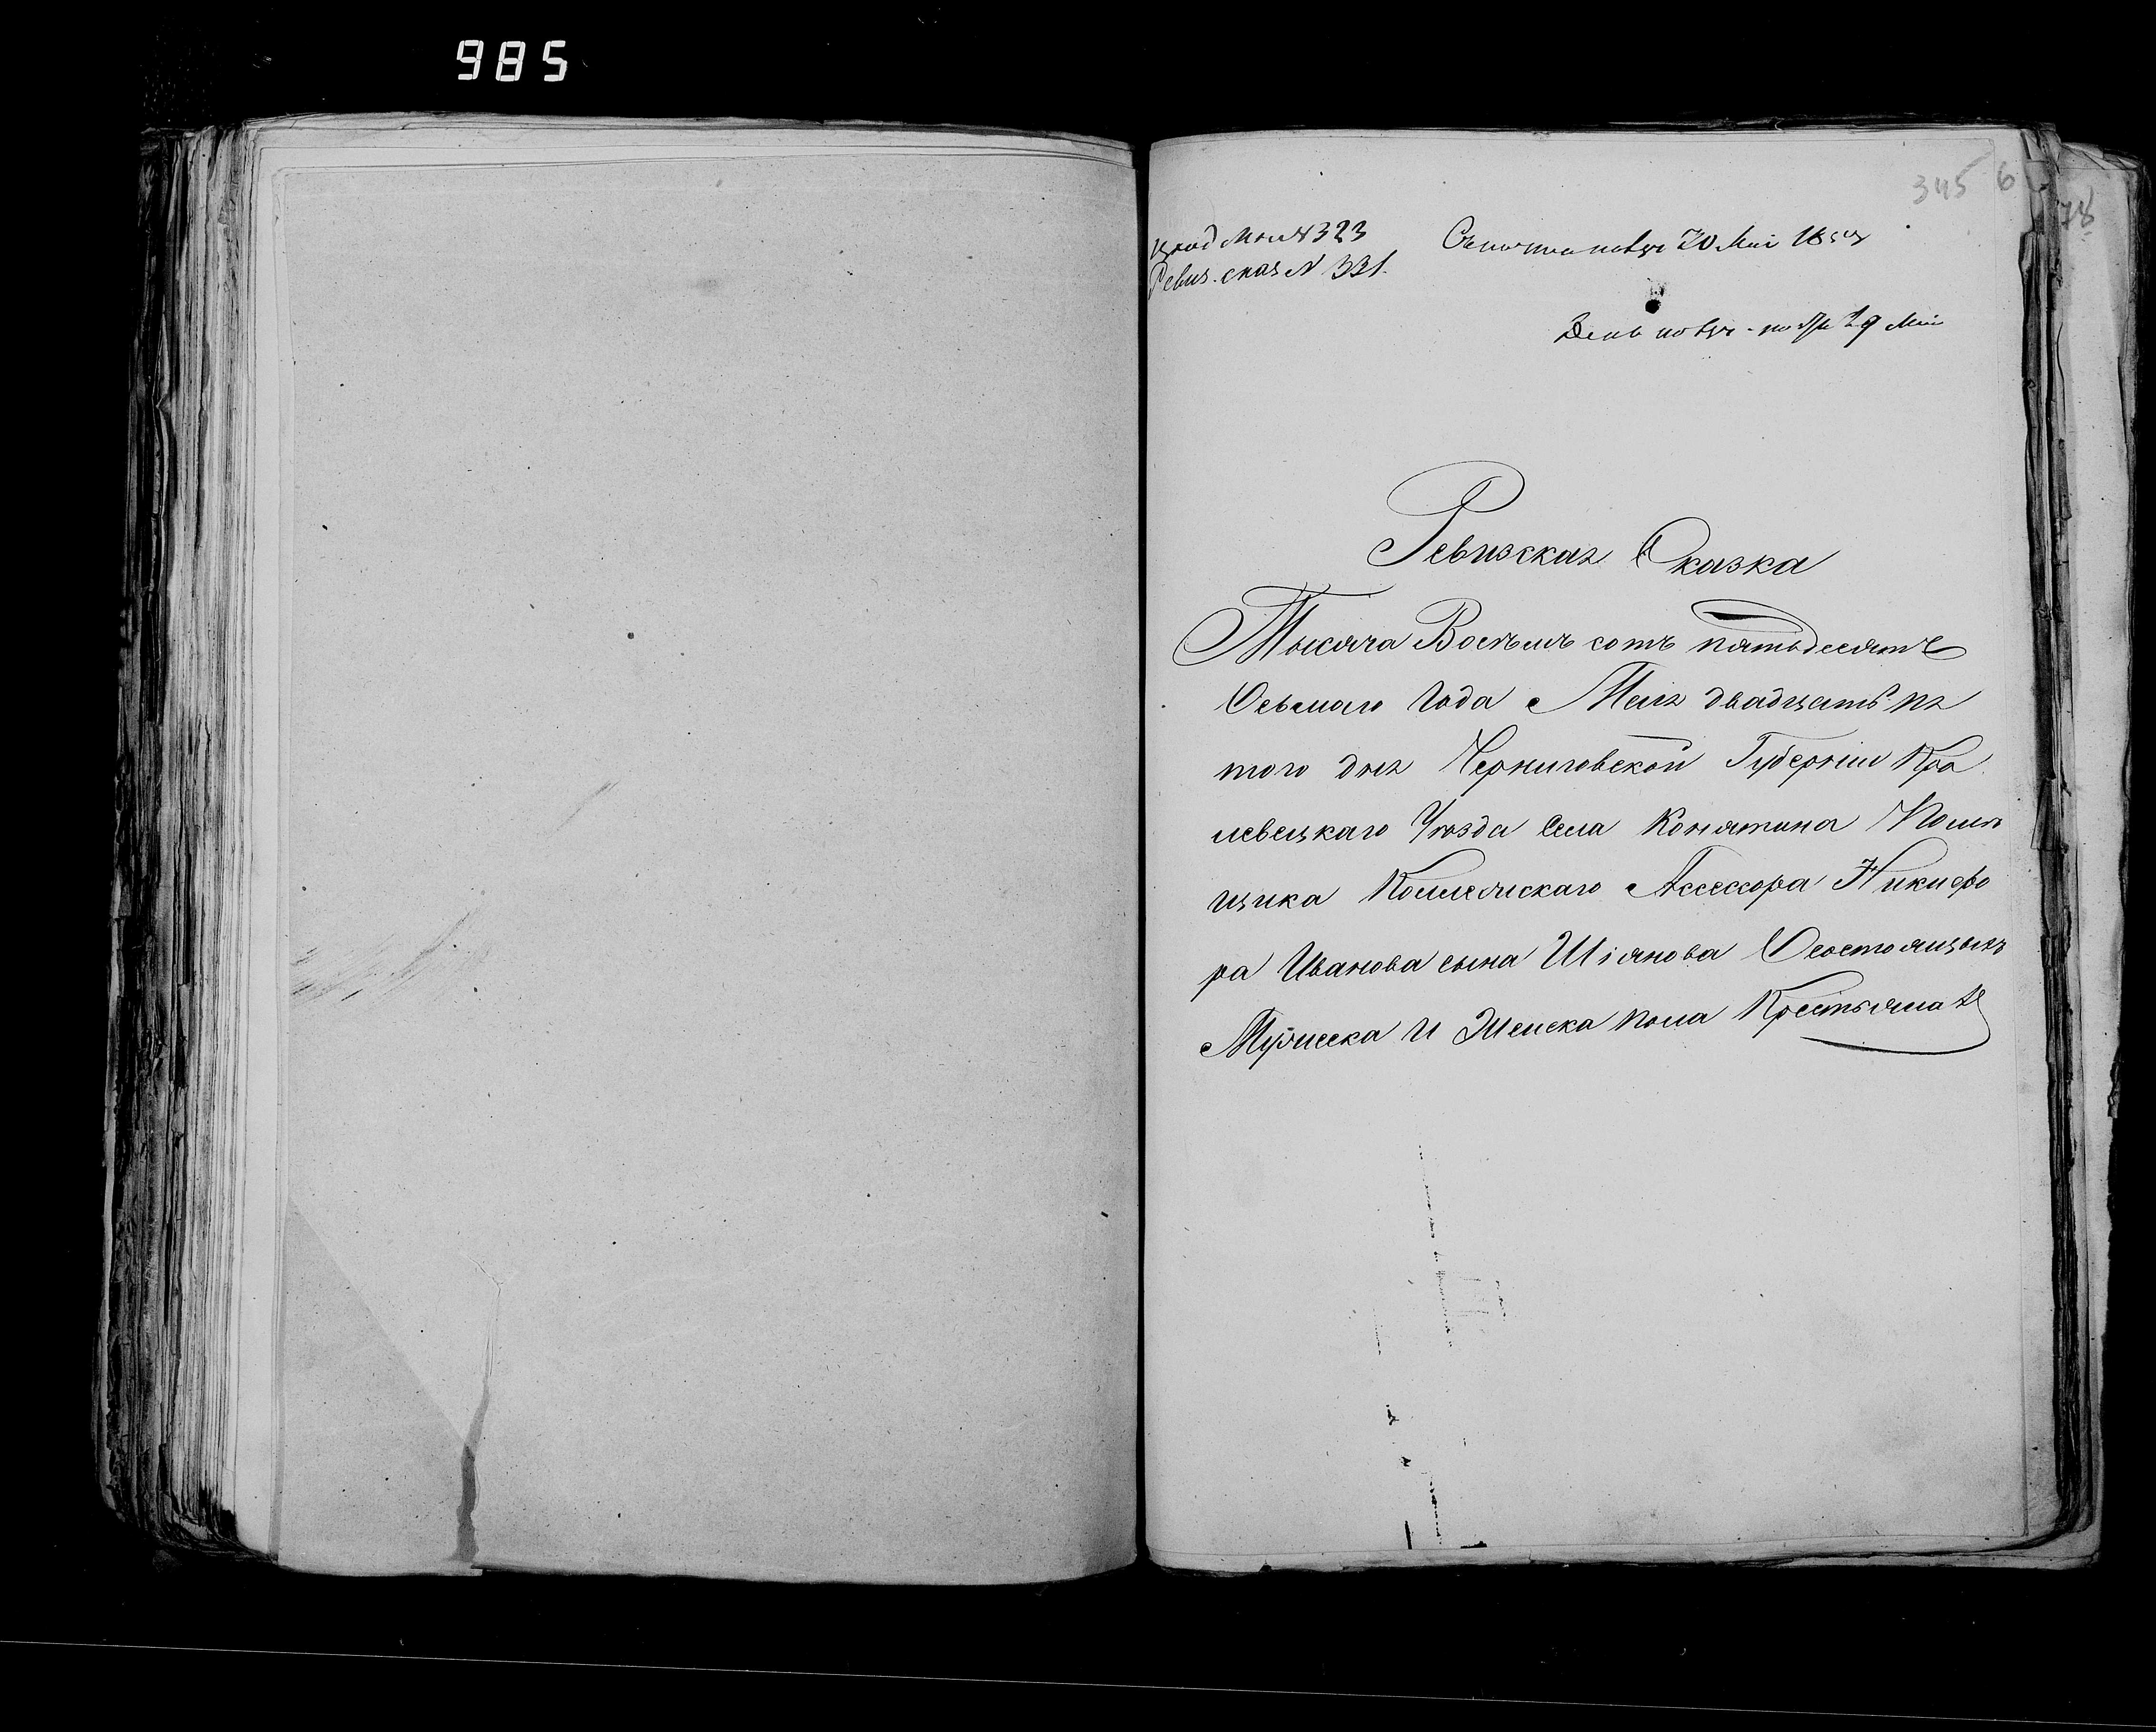 985
345 6
78
№ 323
Ревиз. сказ № 331.
Съ почты получ 30 Маи 1858
29 Маи
Ревизская Сказка
Тысяча Восемь сотъ пятьдесятъ
Осьмаго Года Мая двадцать пя
того дня Черниговской Губерніи Кро
левецкаго Уѣзда Села Конятина Помѣ
щика Коллежскаго Ассессора Никифо
ра Иванова сына Шіянова О состоящихъ
Мужеска и Женска пола Крестьянахъ